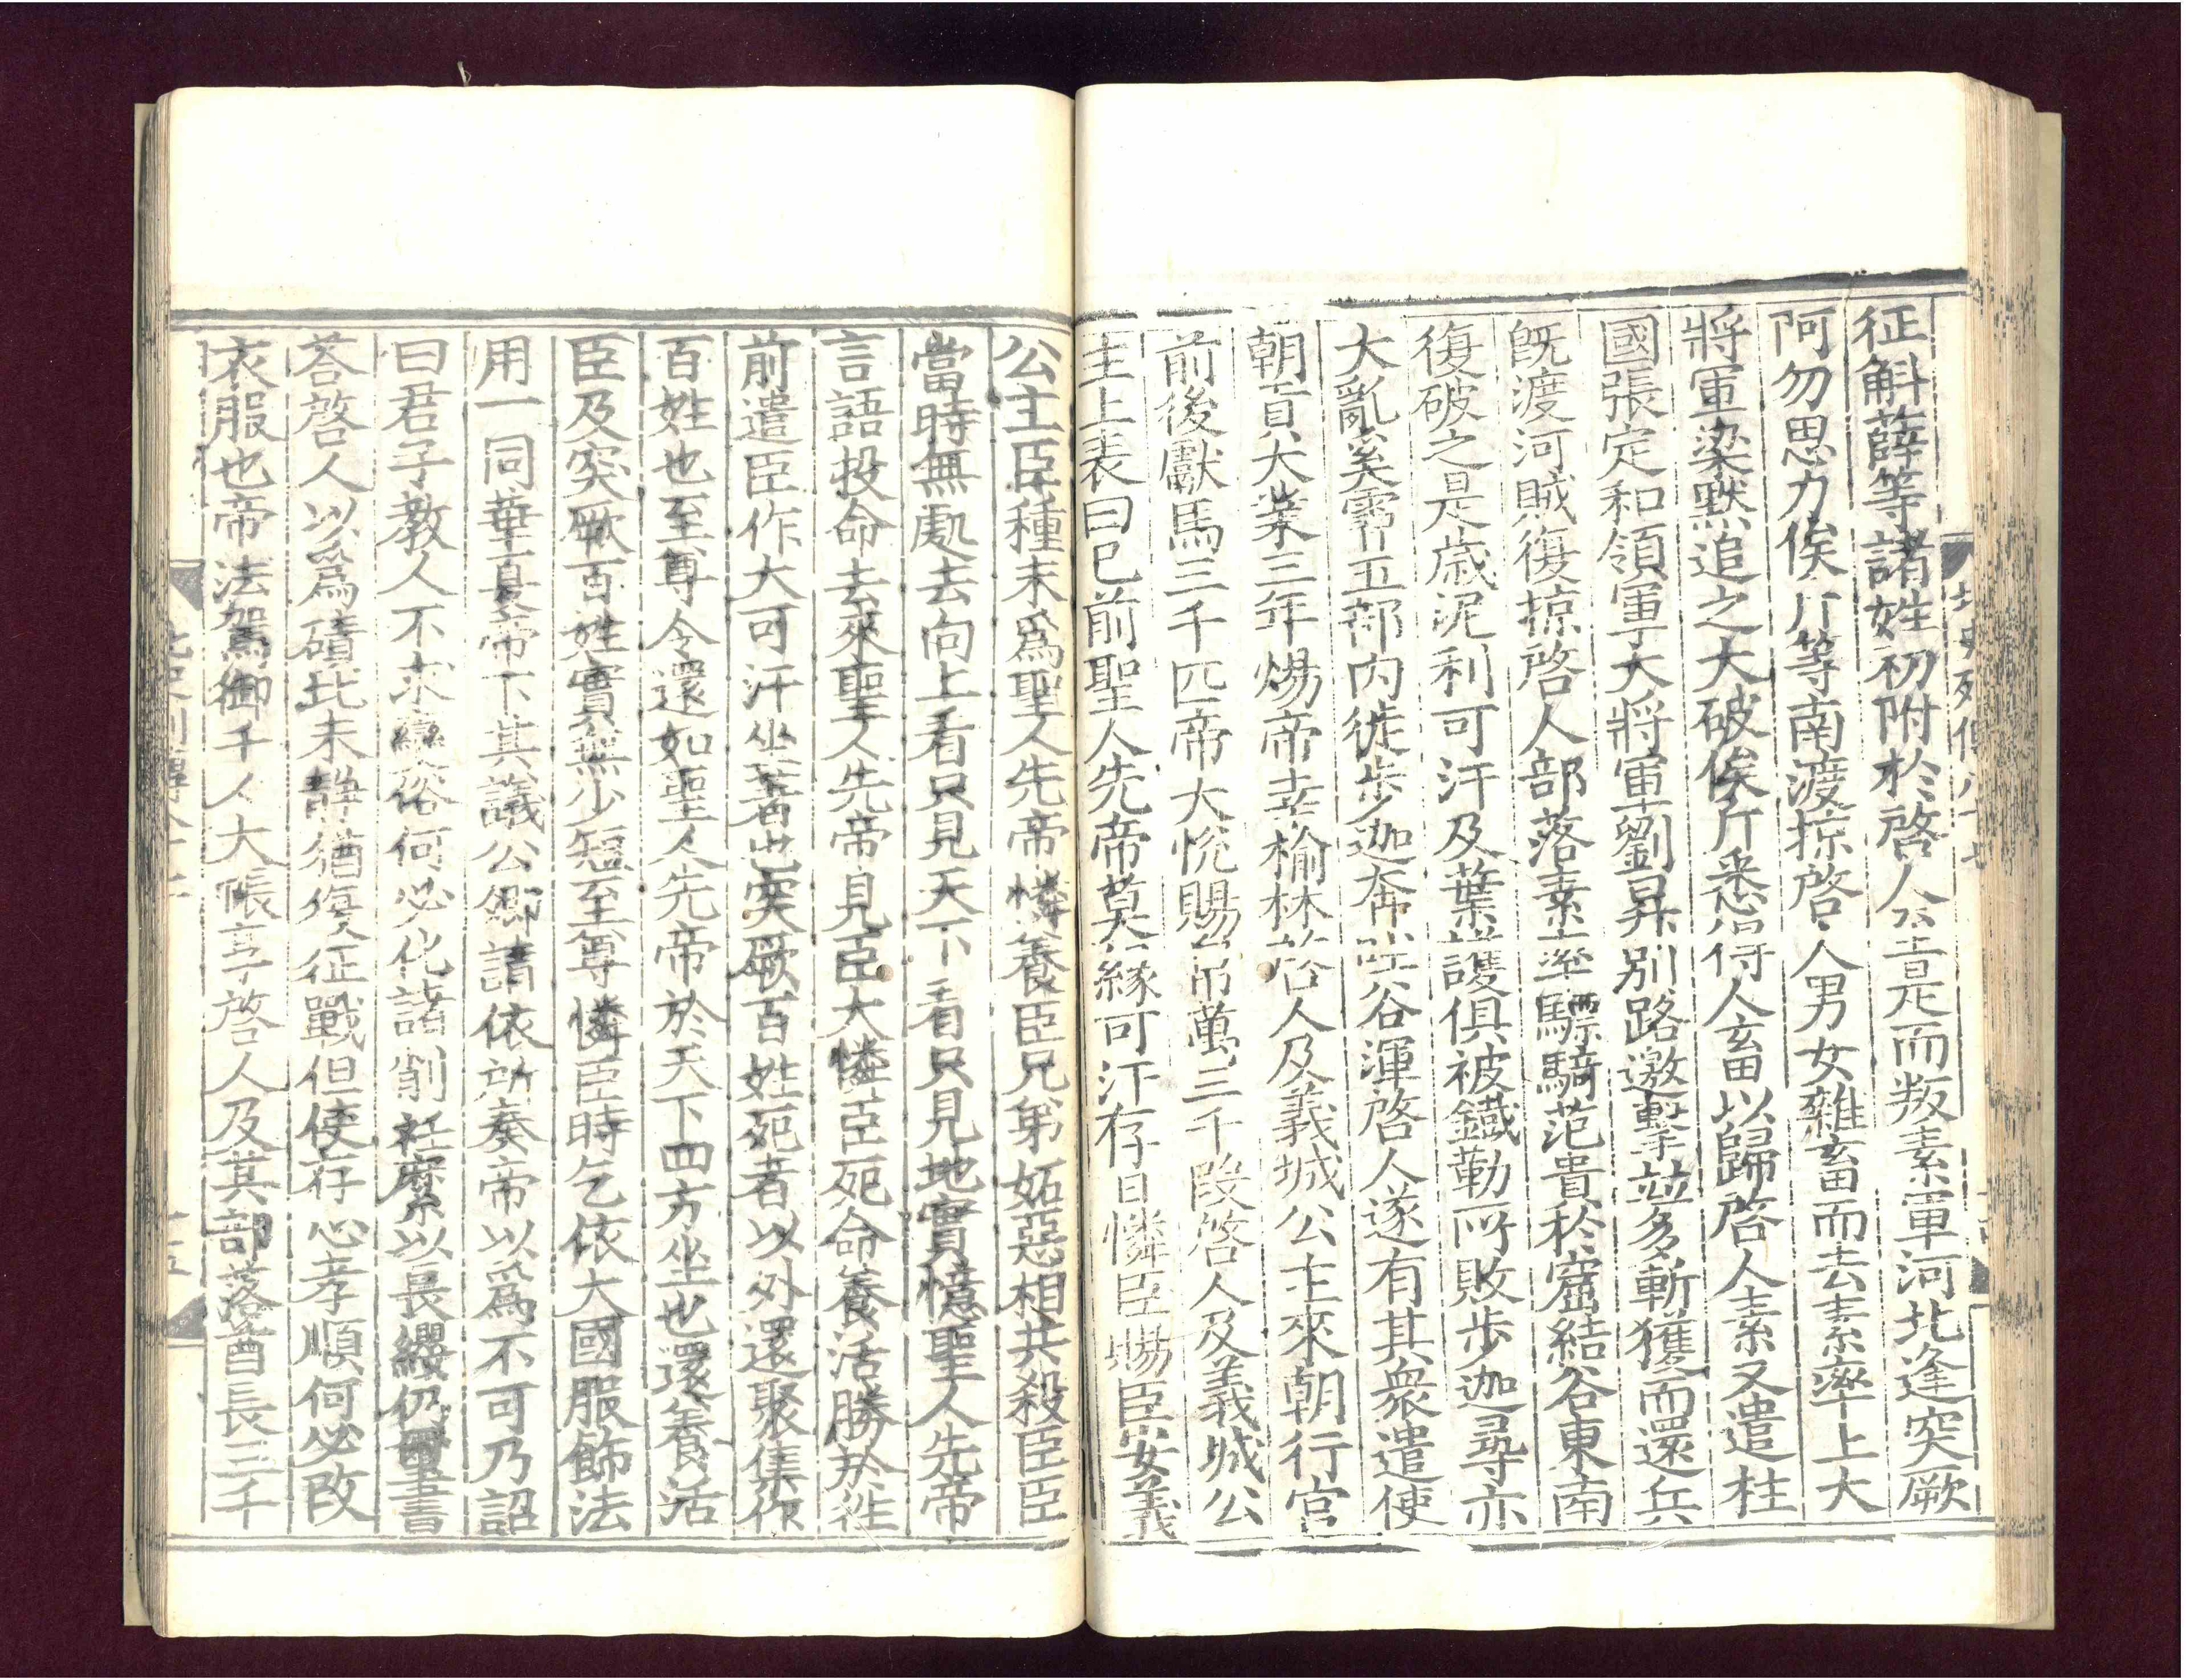 征斛薛等諸姓初附於啓人至是而叛素軍河北逢突厥
阿勿思力俟斤等南渡掠啓人男女雜畜而去素率上大
將軍梁默追之大破俟斤悉得人畜以歸啓人素又遣柱
國張定和領軍大將軍劉昇別路邀擊並多斬獲而還兵
既渡河賊復掠啓人部落素率驃騎范貴於窟結谷東南
復破之是歲泥利可汗及葉護俱被鐵勒所敗步迦尋亦
大亂奚霫五部内徙步迦奔吐谷渾啓人遂有其衆遣使
朝貢大業三年煬帝幸榆林啓人及義城公主來朝行宮
前後獻馬三千匹帝大悅賜帛萬三千段啓人及義城公
主上表曰已前聖人先帝莫緣可汗存日憐臣賜臣安義
北史列傳八十七
公主臣種末爲聖人先帝憐養臣兄弟妬惡相共殺臣臣
當時無處去向上看只見天下看只見地實憶聖人先帝
言語投命去來聖人先帝見臣大憐臣死命養活勝於徃
前遣臣作大可汗坐著也突厥百姓死者以外還聚集作
百姓也至尊今還如聖人先帝於天下四方坐也還養活
臣及突厥百姓實無少短至尊憐臣時乞依大國服飾法
用一同華夏帝下其議公卿請依所奏帝以爲不可乃詔
曰君子教人不求變俗何必化諸削衽縻以長纓仍璽書
荅啓人以爲磧北未靜猶復征戰但使存心孝順何必改
衣服也帝法駕御千人大帳享啓人及其部落酋長三千
北史列傳
十五